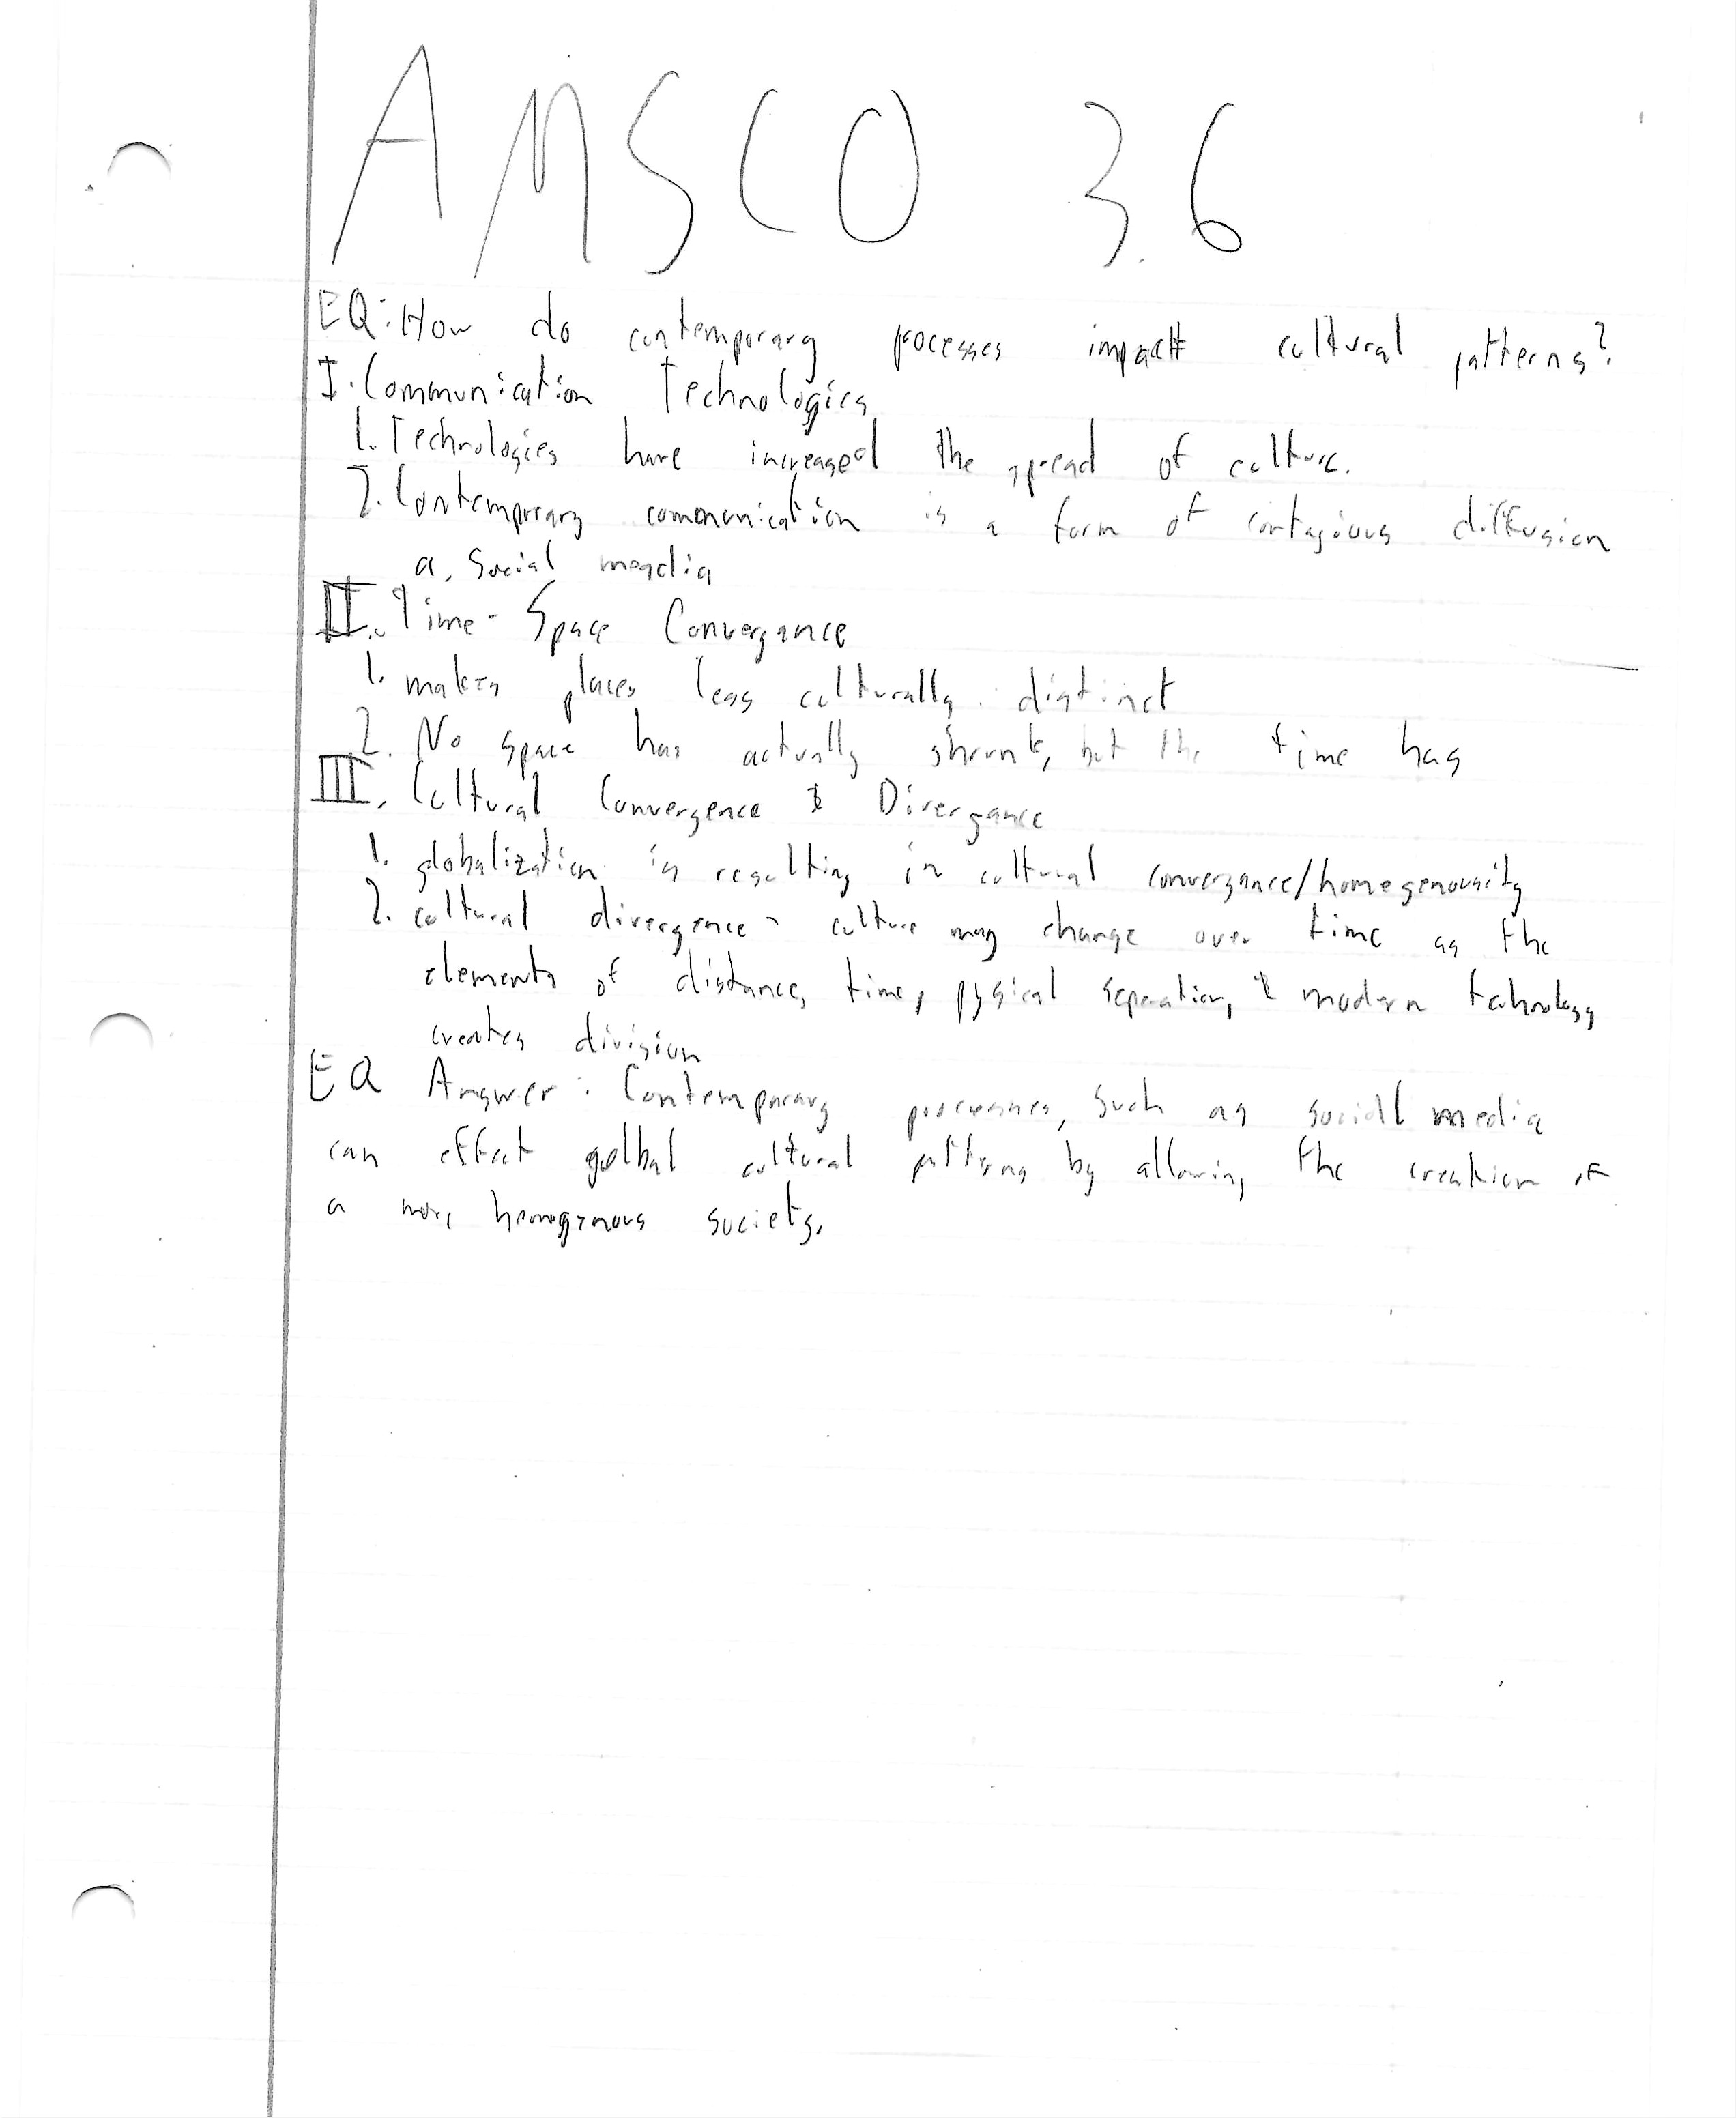 AMSCO 3.6
EQ: How do contemporary processes impact cultural patterns?
I. Communication Technologies
1. Technologies have increased the spread of culture.
2. Contemporary communication is a form of contagious diffusion
a. Social meadia
II. Time-Space Convergance
1. makes places less culturally distinct
2. No space has actually shrunk, but the time has
III. Cultural Convergence & Divergance
1. globalization is resulting in cultural convergance/homegenousity
2. cultural divergence - culture may change over time as the
elements of distance, time, pysical separation, & modern technology
creates division
EQ Answer: Contemporary processes, such as social media
can effect golbal cultural patterns by allowing the creation of
a more homogenous society.